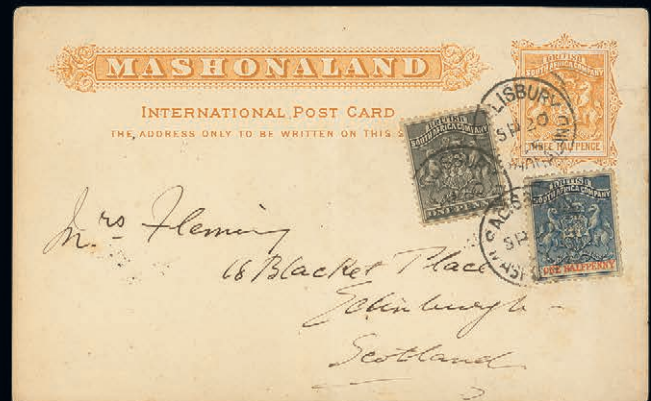 MASHONALAND
INTERNATIONAL POST CARD
THE ADDRESS ONLY TO BE WRITTEN ON THIS S
BRITISH
SOUTH AFRICA COMPANY
THREE HALFPENCE
SALISBURY
SP 20
BRITISH
SOUTH AFRICA COMPANY
ONE PENNY
BRITISH
SOUTH AFRICA COMPANY
ONE HALFPENNY
Mrs Fleming
16 Blacket Place
Edinburgh
Scotland